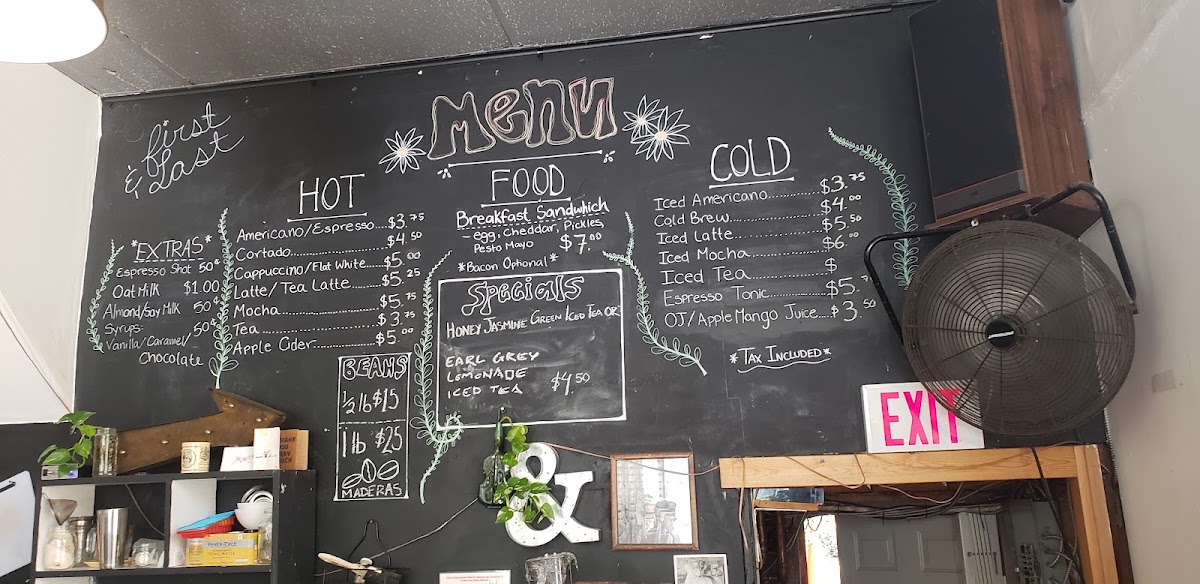 first
& Last
Menu
*EXTRAS*
Espresso Shot 50¢
Oat Milk $1.00
Almond/Soy Milk 50¢
Syrups: 50¢
Vanilla/Caramel/
Chocolate
HOT
Americano/Espresso....$3.75
Cortado..............$4.50
Cappuccino/Flat White.....$5.00
Latte/Tea Latte........$5.25
Mocha..............$5.75
Tea..............$3.75
Apple Cider..........$5.00
BEANS
1/2 lb $15
1 lb $25
MADERAS
FOOD
Breakfast Sandwhich
- egg, cheddar, Pickles,
Pesto Mayo $7.00
*Bacon Optional*
Specials
HONEY JASMINE GREEN ICED TEA OR
EARL GREY
LEMONADE
ICED TEA $4.50
COLD
Iced Americano..........$3.75
Cold Brew..............$4.00
Iced Latte..............$5.50
Iced Mocha..............$6.00
Iced Tea..............$
Espresso Tonic..........$5.
OJ/Apple Mango Juice....$3.50
*TAX INCLUDED*
EXIT
&
THANK
YOU
VERY
MUCH